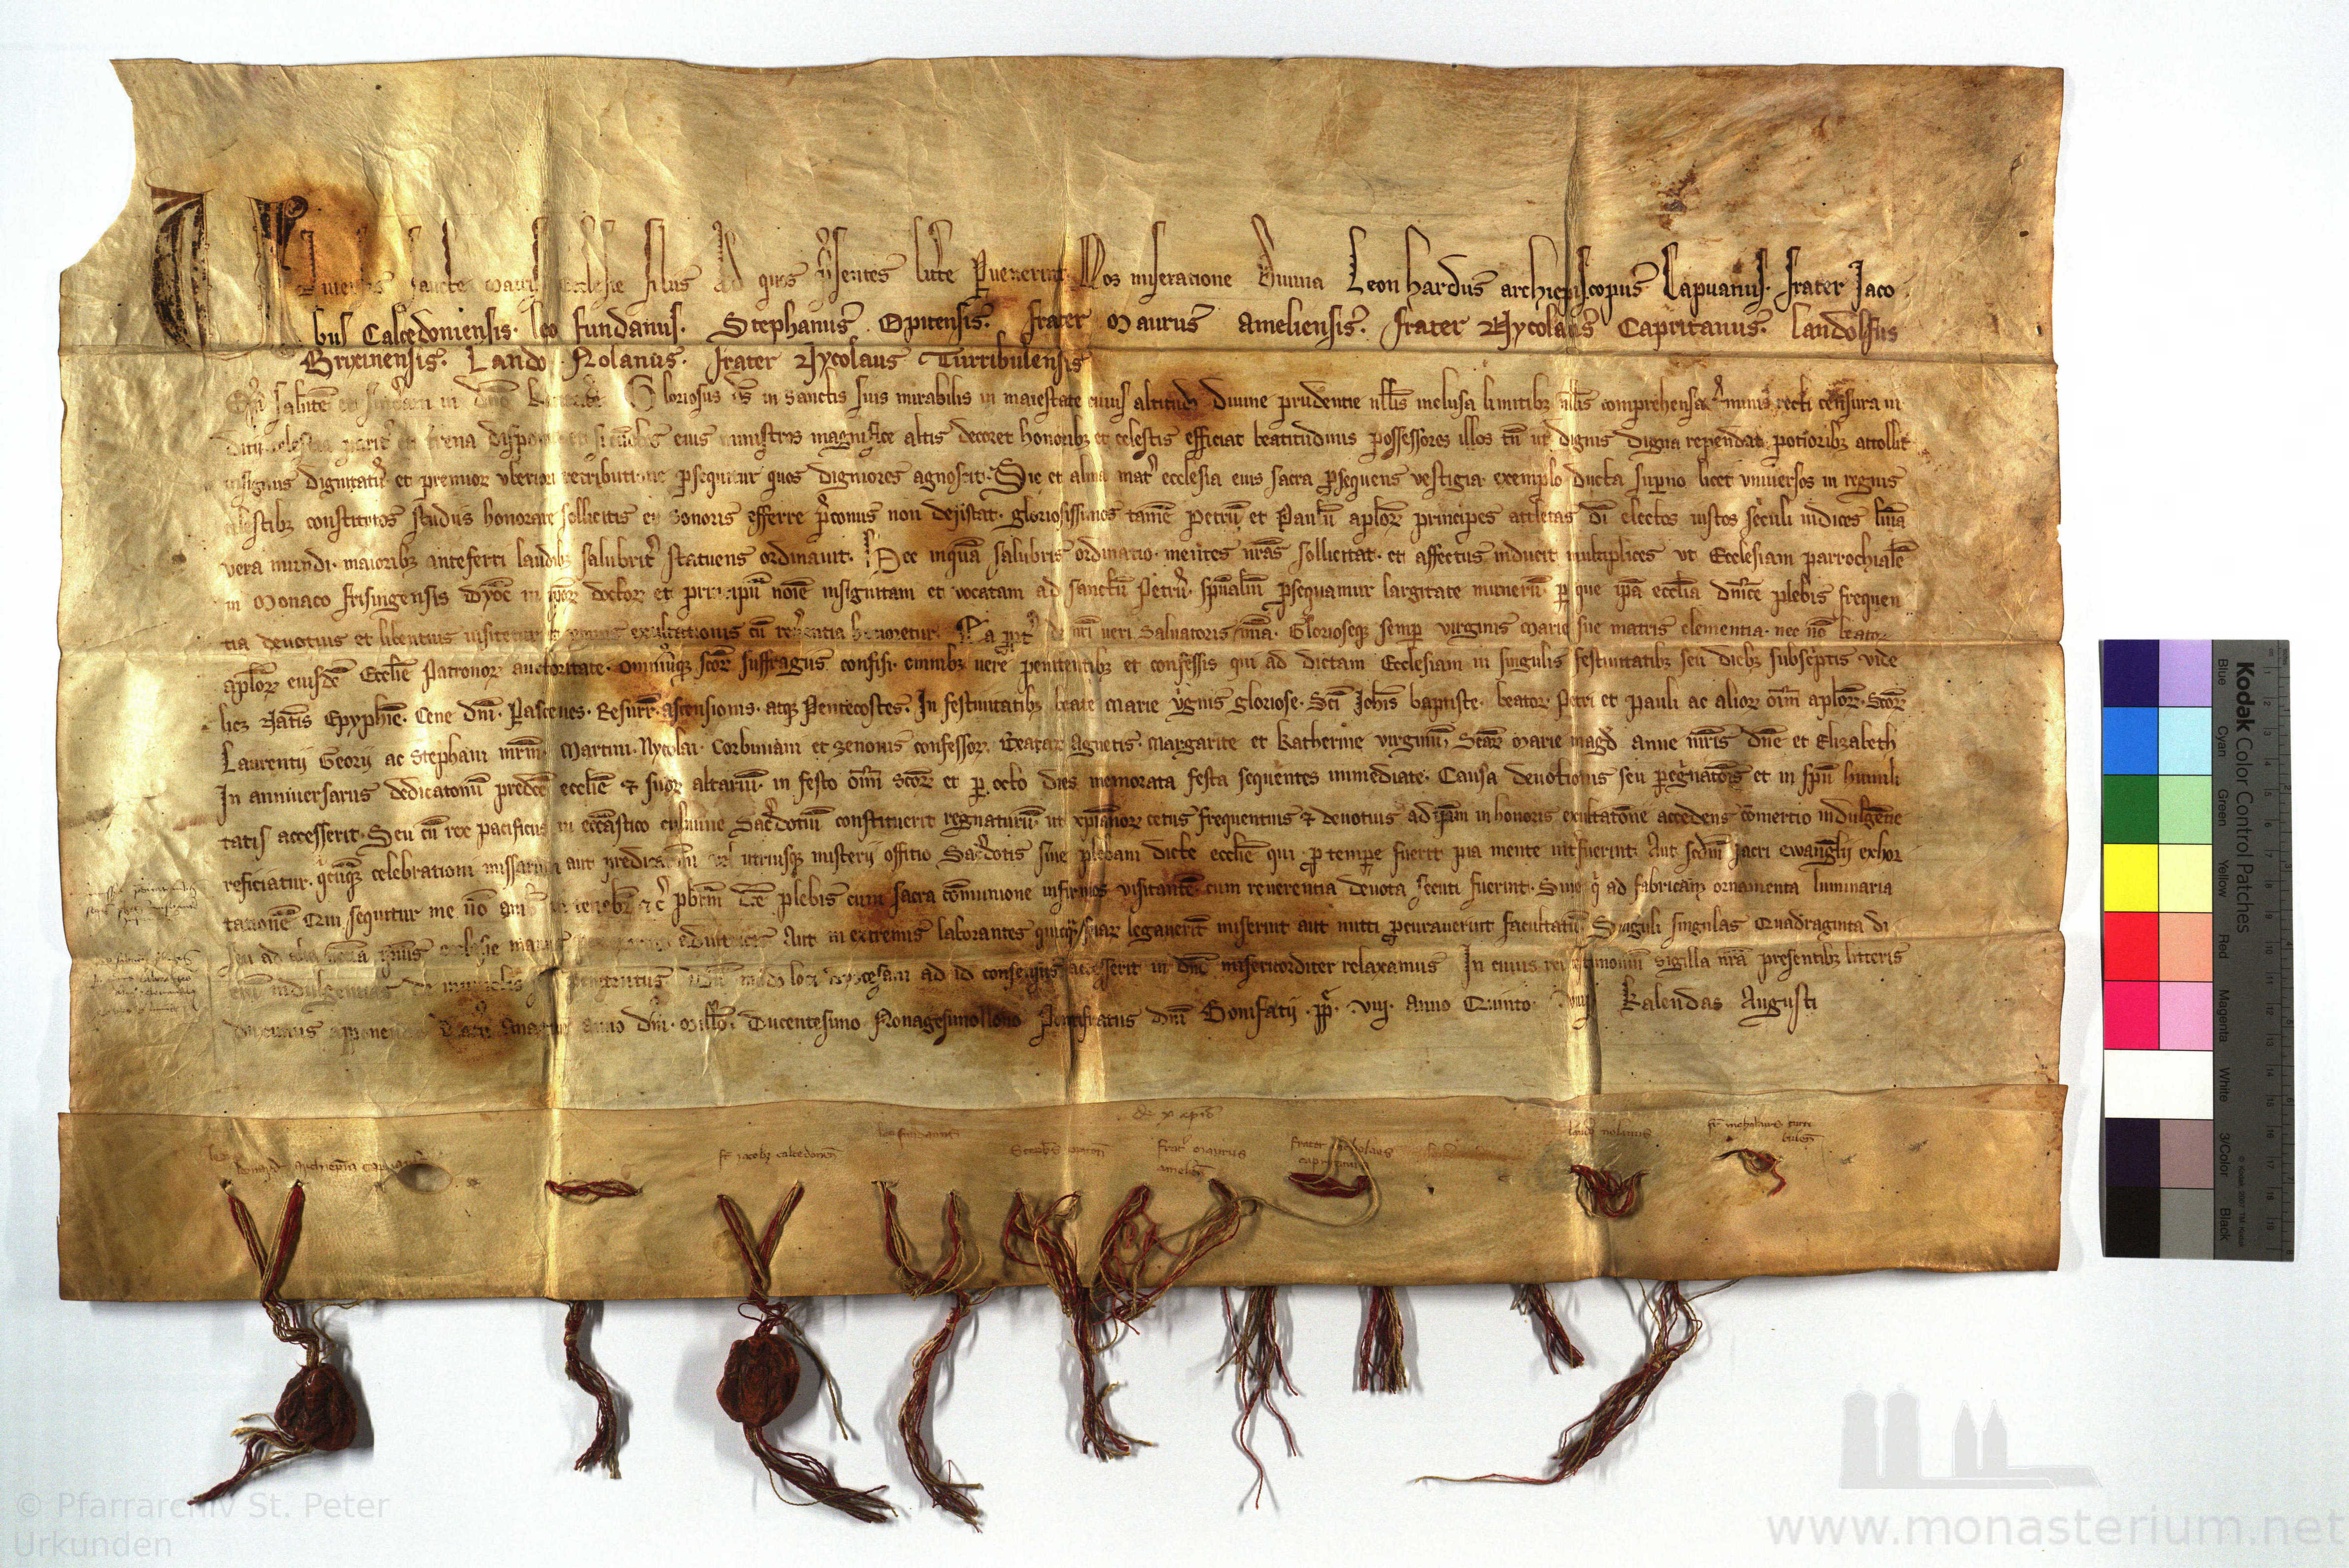 Universis sancte matris ecclesie filiis Ad quos p̄sentes litt̄e ꝑuenerint Nos miseratione diuina Leonhardus archiepiscopus Capuanus. frater Jaco
bus Calcedoniensis. leo fundanus. Stephanus Opitensis. frater Maurus Ameliensis. frater Nycolaus Capritanus. landolfus
Brixinensis. Lando Nolanus. frater Nycolaus Turribulensis
salutē in dn̄o Gloriosus ds̄ in sanctis suis mirabilis in maiestate cuius altitudo diuine prudentie null̄is inclusa limitibꝫ null̄is comprehensa t̄minis recti censura iu
eius ministros magnifice altis decoret honoribꝫ et celestis efficiat beatitudinis possessores illos tn̄ ut dignis digna rependat potioribꝫ attollit
insigniis dignitatū et premioꝝ uberiori retributione ꝓsequitur quos digniores agnoscit. Sic et alma mat̄ ecclesia eius sacra ꝓsequens vestigia exemplo ducta suꝑno licet vniuersos in regnis
celestibꝫ constitutos studiis honorare sollicitis et sonoris efferre p̄coniis non desistat. gloriosissimos tamē Petrū et Paulū apl̄oꝝ principes athletas dī electos iustos seculi iudices lumīa
vera mundi. maioribꝫ anteferri laudibꝫ salubrit̄ statuens ordinauit. Hec inquā salubris ordinatio. mentes nr̄as sollicitat. et affectus inducit multiplices ut Ecclesiam parrochialē
in Monaco frisingensis dyoc̄ in ip̄oꝝ doctoꝝ et principū noīe insignitam et vocatam ad sanctū Petrū. spūaliū ꝓsequamur largitate munerū. ꝑ que ip̄a eccl̄ia dn̄ice plebis frequen
tia deuotius et libentius uisitetur et ympnis exultationis cū reuerentia honoretur. Ea ꝓpt̄ de nr̄i ueri Saluatoris mīa. Glorioseqꝫ semꝑ virginis Marie sue matris clementia. nec nō beatoꝝ
apl̄oꝝ eiusdē Eccl̄ie Patronoꝝ auctoritate. omniūqꝫ scōꝝ suffragiis confisi. omnibꝫ uere penitentibꝫ et confessis qui ad dictam Ecclesiam in singulis festiuitatibꝫ seu diebꝫ subsc̄ptis vide
licꝫ Natīs Epyphīe. Cene dn̄i. Pasceues. Resurr̄. ascensionis. atqꝫ Pentecostes. In festiuitatibꝫ beate Marie ỽginis gloriose. Scī Joh̄is baptiste. beatoꝝ Petri et Pauli ac alioꝝ oīm apl̄oꝝ. Scōꝝ
Laurentij Georij ac Stephani mr̄m. Martini. Nycolai. Corbiniani et zenonis confessoꝝ. Beataꝝ Agnetis. Margarite et katherine virginū. Scāꝝ Marie magd̄ anne mr̄is dn̄e et Elizabeth
In anniuersariis dedicationū predc̄e eccl̄ie et suoꝝ altariū. in festo oīm scōꝝ et ꝑ octo dies memorata festa sequentes immediate. Causa deuotionis seu ꝑegnātōis et in spū humili
tatis accesserit. Seu cū rex pacificus in eccl̄astico culmine Sac̄dotiū constituerit regnaturū ut xp̄ianoꝝ cetus frequentius et deuotius ad ip̄am in honoris exultatōne accedens comertio indulgēcie
reficiatur. q̄cūqꝫ celebrationi missarum aut predicationi vel utriusqꝫ misterij offitio Sac̄dotis siue plebani dicte eccl̄ie qui ꝓ tempe fuerit pia mente int̄fuerint. Aut scdm̄ sacri ewangl̄ij exhor
tationē Qui sequitur me nō amb̄ in tenebr̄ etc̄ p̄brm̄ dc̄e plebis cum sacra cōmunione infirmos visitantē cum reuerentia deuota secuti fuerint. Siue q̄ ad fabricam ornamenta luminaria
seu ad alia ecclesie Aut in extremis laborantes quicq̄ suaꝝ legauerīt miserint aut mitti ꝓcurauerint facultatū Singuli singulas Quadraginta di
indulgentias de iniunctis penitentiis dūmodo loci dyocesani ad id consensus accesserit in dn̄o misericorditer relaxamus In cuius rei testimoniū sigilla nr̄a presentibꝫ litteris
duximus apponenda Datū Anagnie anno dn̄i. Mill̄o. Ducentesimo Nonagesimonono Pontificatus dn̄i Bonifatij. pp̄. viij. anno Quinto. viij kalendas Augusti
de x ep̄is
leonard archiep̄us capuanus
fr̄ iacobꝫ calcedonen̄
leo fundanus
Stephs̄ opiten̄
frat̄ Maurus
amelien̄
frater Nicholaus
capritan̄
lando nolanus
fr̄ nicholaus turri
bulen̄
Kodak Color Control Patches
Blue Cyan Green Yellow Red Magenta White 3/Color Black
© Pfarrarchiv St. Peter
Urkunden
www.monasterium.net